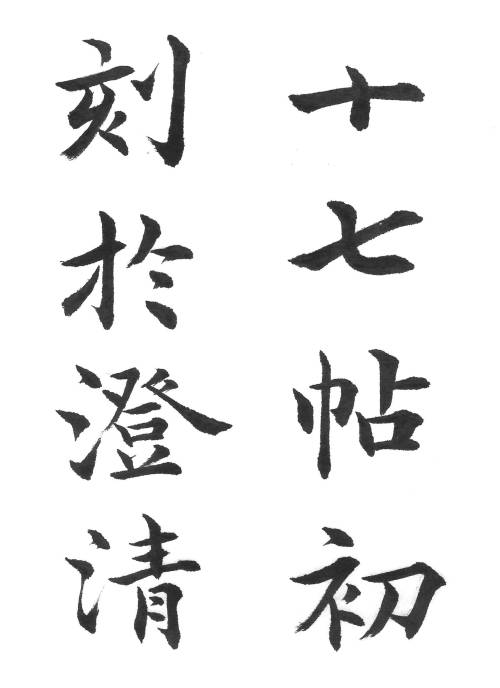 十七帖初
刻於澄清